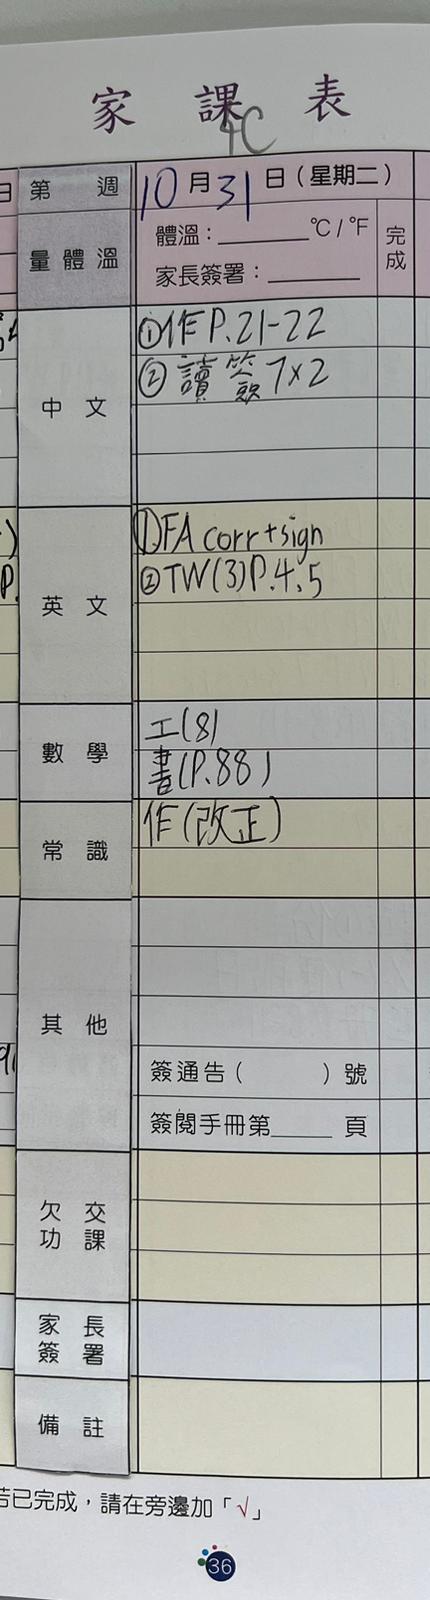 家課表
4C
日
第 週
10月31日(星期二)
量體溫
體溫:______℃/℉
家長簽署:______
完成
中文
①作P.21-22
②讀簽7x2
英文
①FA corr+sign
②TW(3)P.4、5
P.
數學
工(8)
書(P.88)
常識
作(改正)
其他
簽通告( )號
簽閱手冊第____頁
欠交功課
家長簽署
備註
若已完成,請在旁邊加「√」
36